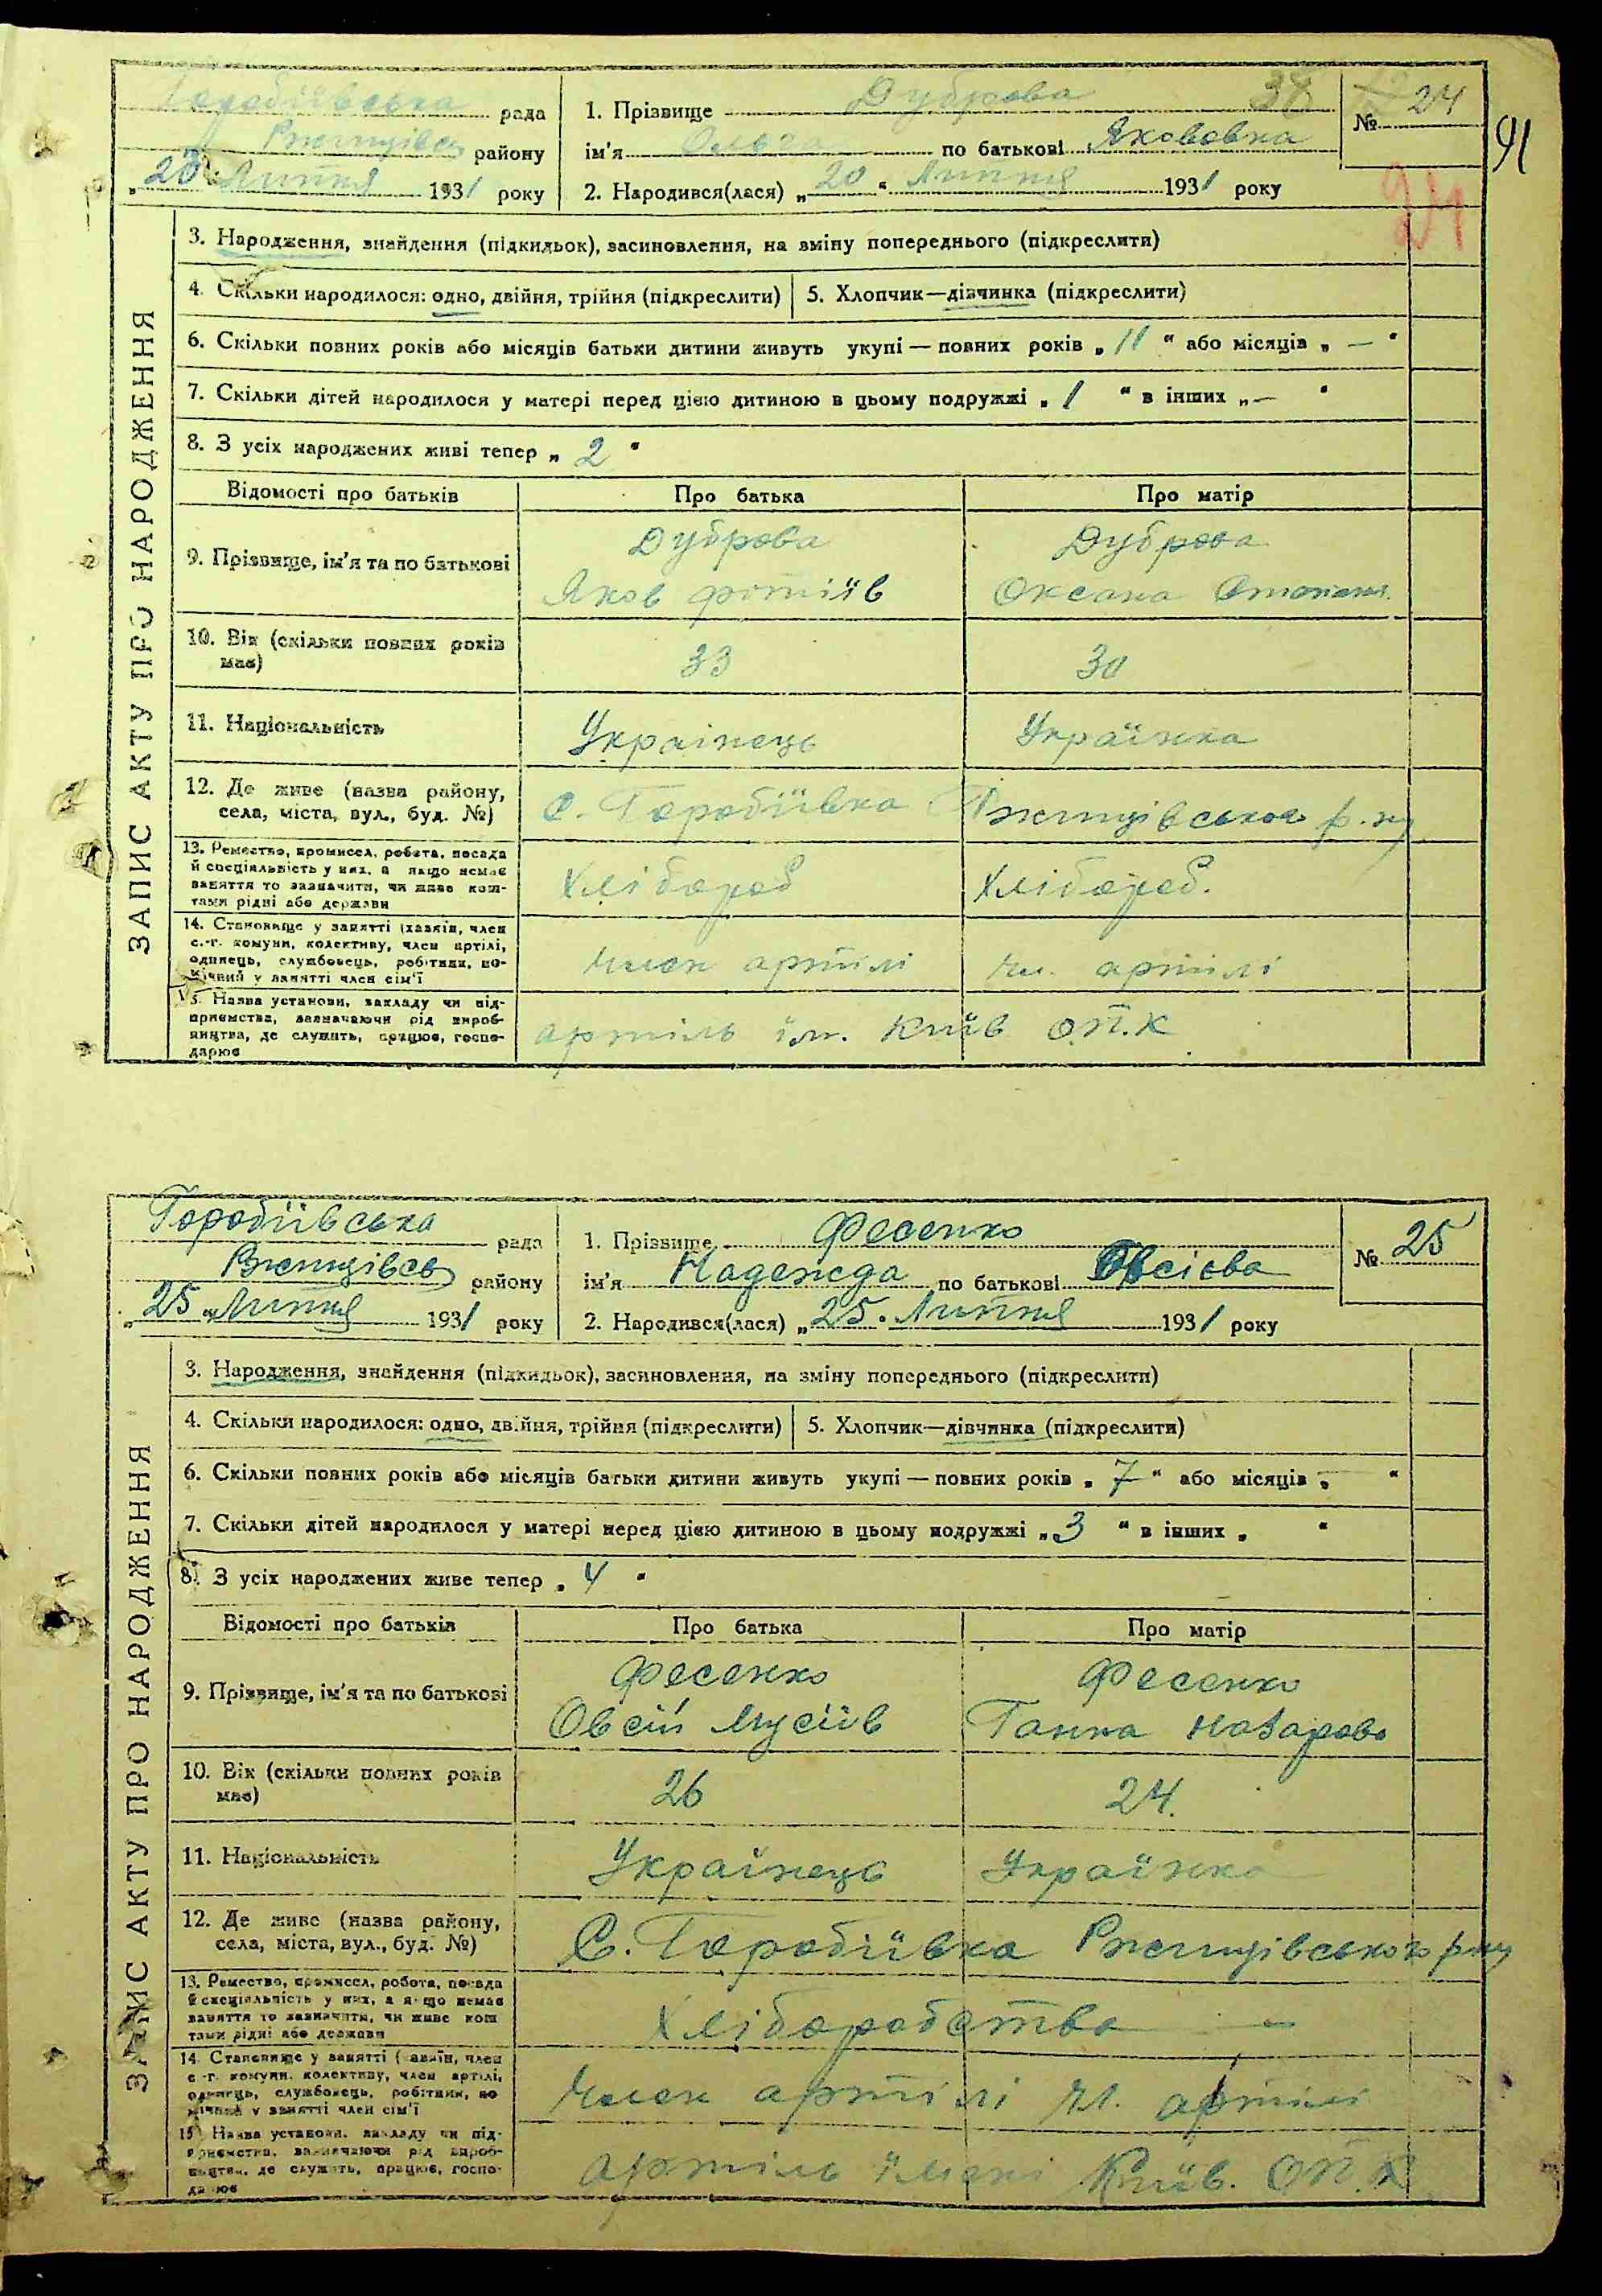 Горобіївська рада
Ржищівсь району
„23“ Липня 1931 року
1. Прізвище Дуброва 38
ім'я Ольга по батькові Якововна
2. Народився(лася) „20“ Липня 1931 року
№ 24
91
24
ЗАПИС АКТУ ПРО НАРОДЖЕННЯ
3. Народження, знайдення (підкидьок), засиновлення, на зміну попереднього (підкреслити)
4. Скільки народилося: одно, двійня, трійня (підкреслити) 5. Хлопчик—дівчинка (підкреслити)
6. Скільки повних років або місяців батьки дитини живуть укупі — повних років „ 11 “ або місяців „ — “
7. Скільки дітей народилося у матері перед цією дитиною в цьому подружжі „ 1 “ в інших „ — “
8. З усіх народжених живі тепер „ 2 “
Відомості про батьків Про батька Про матір
9. Прізвище, ім'я та по батькові
Дуброва Дуброва
Яков фотіїв Оксана
10. Вік (скільки повних років має) 33 30
11. Національність Украінець Українка
12. Де живе (назва району, села, міста, вул., буд. №) с. Горобіївка Ржищівського р-ну
13. Ремество, промисел, робота, посада
й спеціальність у них, а якщо немає
заняття то зазначити, чи живе кош-
тами рідні або держави
Хлібороб Хлібороб.
14. Становище у занятті (хазяїн, член
с.-г. комуни, колективу, член артілі,
одинець, службовець, робітник, по-
мічний у занятті член сім'ї
член артілі чл. артілі
15. Назва установи, закладу чи під-
приємства, зазначаючи рід вироб-
ництва, де служить, працює, госпо-
дарює
артіль ім. Київ О.П.К
Горобіївська рада
Ржищівсь району
„25“ Липня 1931 року
1. Прізвище Фесенко
ім'я Надежда по батькові Овсієва
2. Народився(лася) „25“ Липня 1931 року
№ 25
ЗАПИС АКТУ ПРО НАРОДЖЕННЯ
3. Народження, знайдення (підкидьок), засиновлення, на зміну попереднього (підкреслити)
4. Скільки народилося: одно, двійня, трійня (підкреслити) 5. Хлопчик—дівчинка (підкреслити)
6. Скільки повних років або місяців батьки дитини живуть укупі — повних років „ 7 “ або місяців „ — “
7. Скільки дітей народилося у матері перед цією дитиною в цьому подружжі „ 3 “ в інших „ “
8. З усіх народжених живе тепер „ 4 “
Відомості про батьків Про батька Про матір
9. Прізвище, ім'я та по батькові
Фесенко Фесенко
Овсій Мусіїв Ганна Назарова
10. Вік (скільки повних років має) 26 24.
11. Національність Українець Українка
12. Де живе (назва району, села, міста, вул., буд. №) С. Горобіївка Ржищівського р-ну
13. Ремество, промисел, робота, посада
й спеціальність у них, а якщо немає
заняття то зазначити, чи живе кош
тами рідні або держави
Хліборобство —
14. Становище у занятті (хазяїн, член
с.-г. комуни, колективу, член артілі,
одинець, службовець, робітник, по
мічний у занятті член сім'ї
член артілі чл. артілі
15. Назва установи, закладу чи під-
приємства, зазначаючи рід вироб-
ництва, де служить, працює, госпо-
дарює
артіль імені Київ. ОП.К